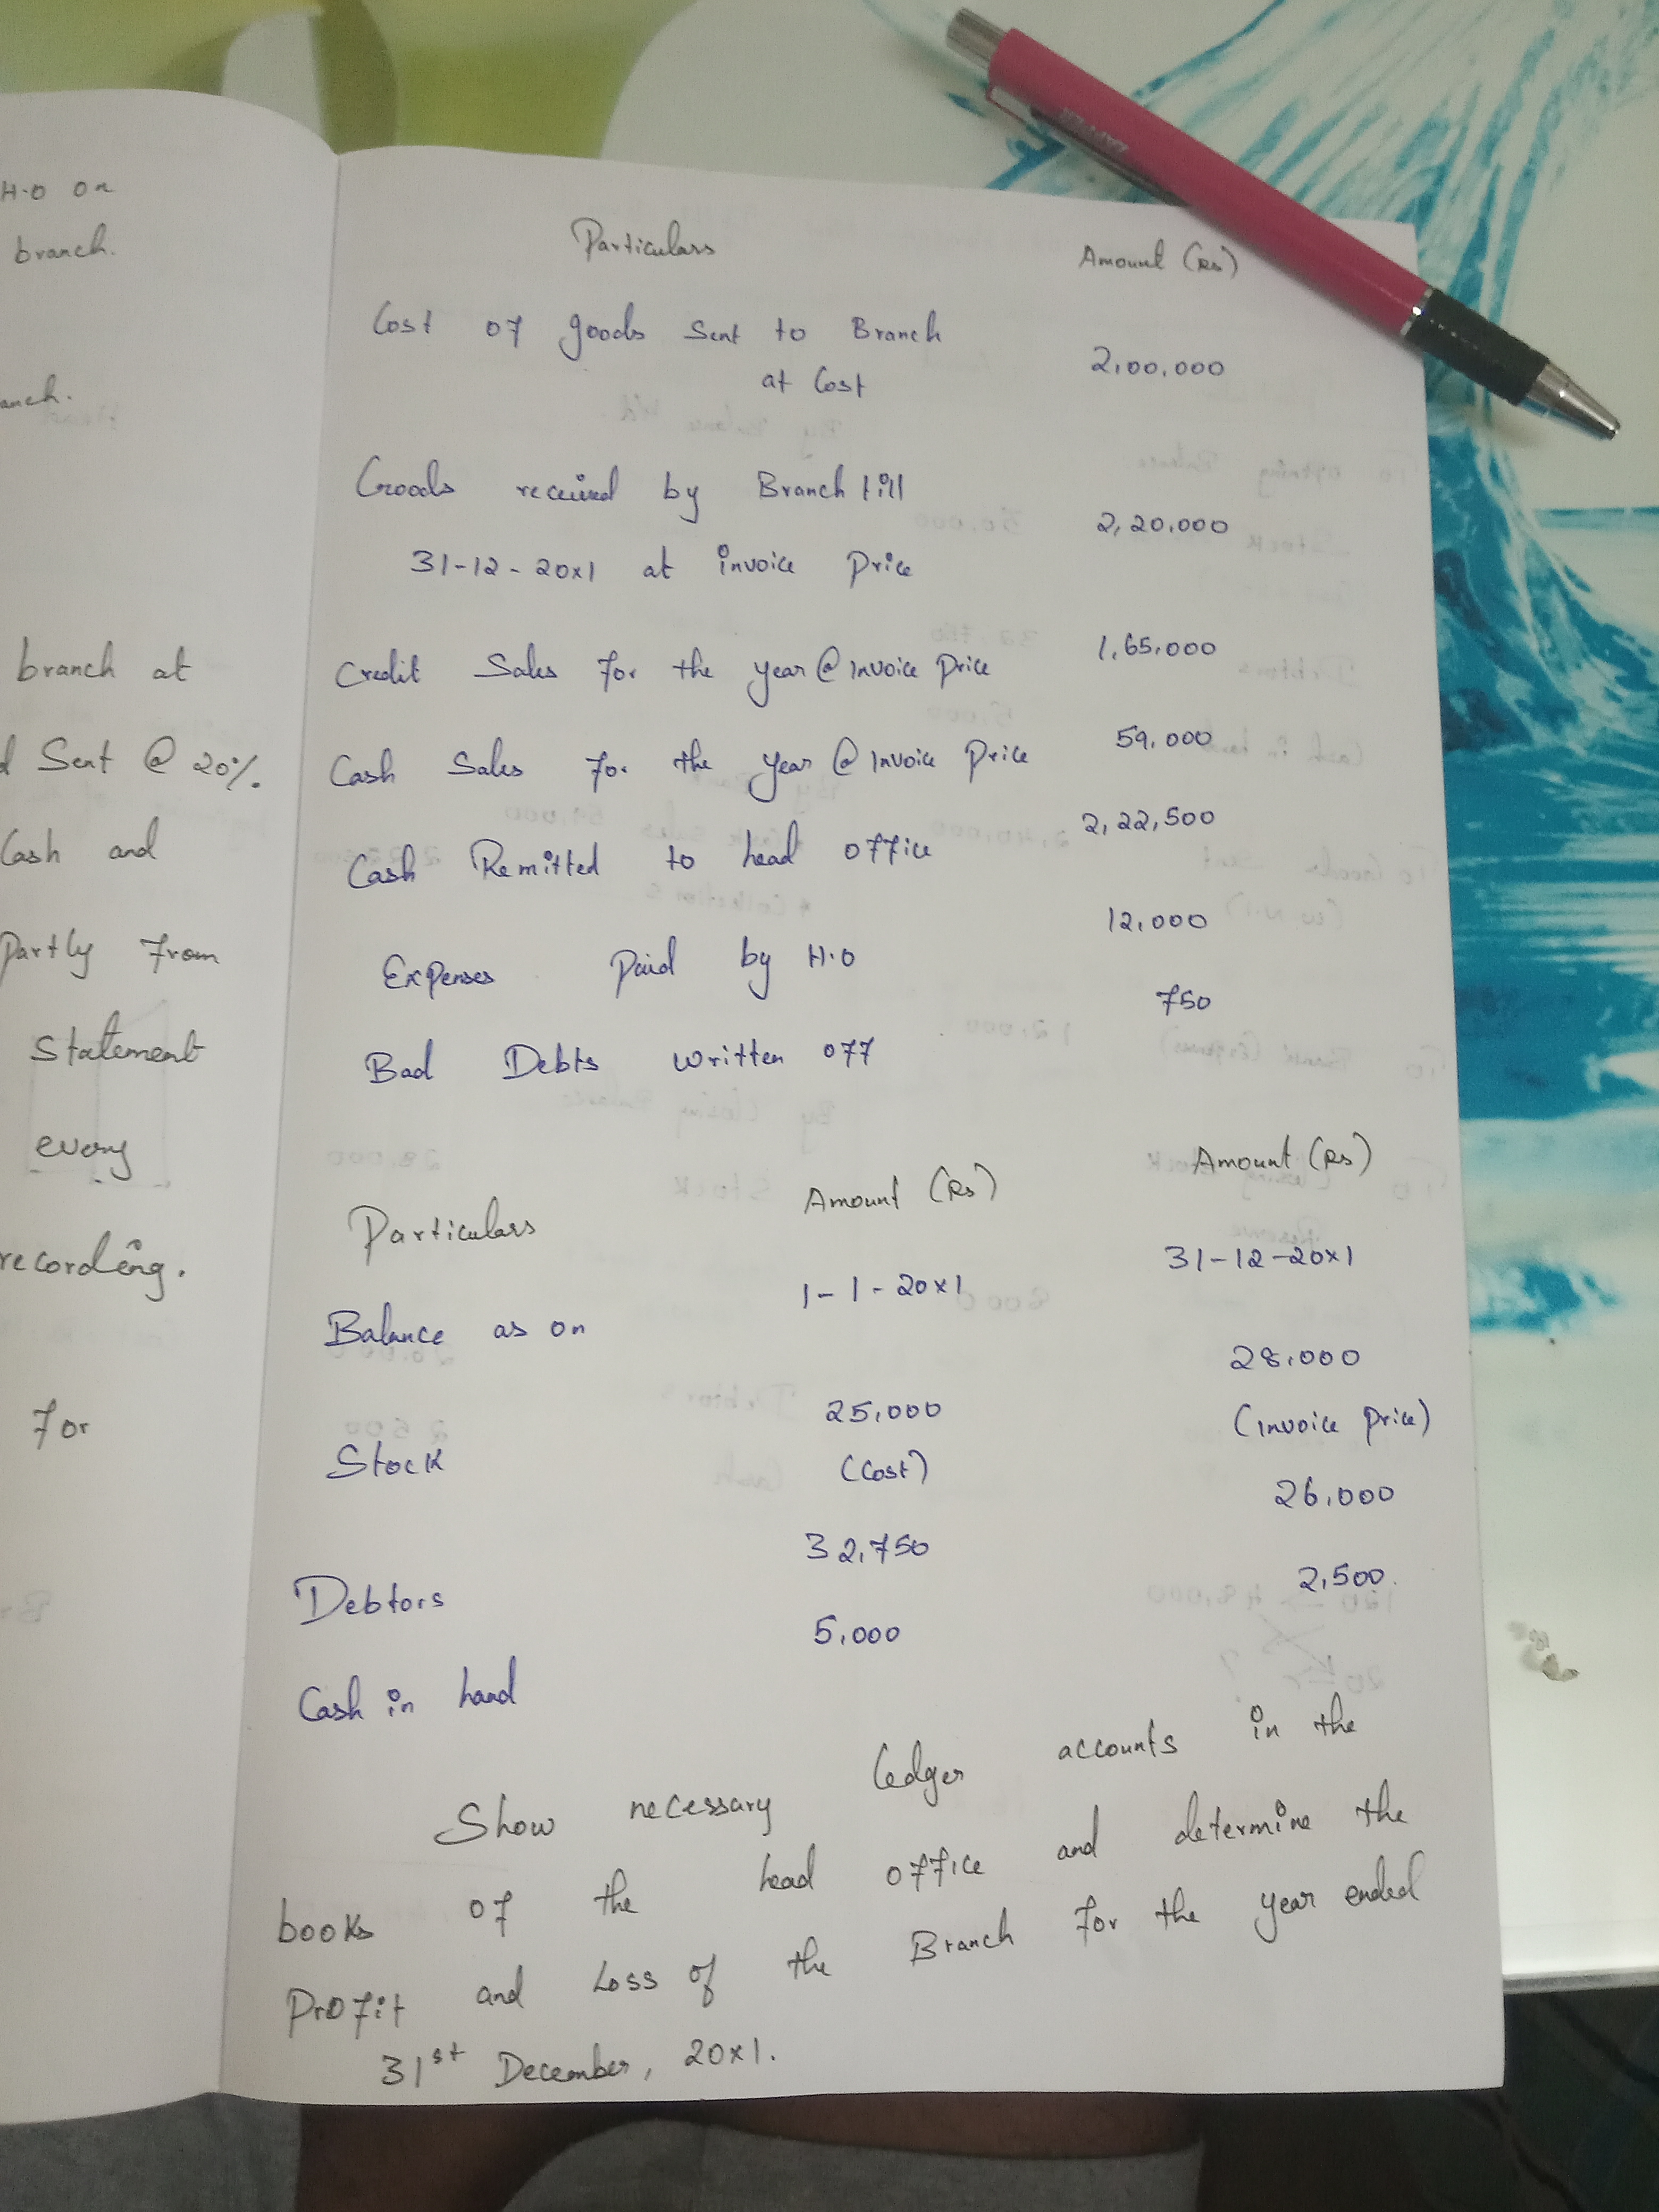 H.O on
branch.
anch.
branch at
d Sent @ 20%.
Cash and
Partly from
Statement
every
recording.
for
Particulars Amount (Rs)
Cost of goods Sent to Branch
at Cost 2,00,000
Goods received by Branch till
31-12-20x1 at invoice Price 2,20,000
Credit Sales for the year @ invoice price 1,65,000
Cash Sales for the year @ invoice Price 59,000
Cash Remitted to head office 2,22,500
Expenses Paid by H.O 12,000
Bad Debts written off 750
Particulars Amount (Rs) Amount (Rs)
Balance as on 1-1-20x1 31-12-20x1
Stock 25,000 28,000
(Cost) (invoice Price)
Debtors 32,750 26,000
Cash in hand 5,000 2,500.
Show necessary ledger accounts in the
books of the head office and determine the
Profit and Loss of the Branch for the year ended
31st December, 20x1.
ZAPPER